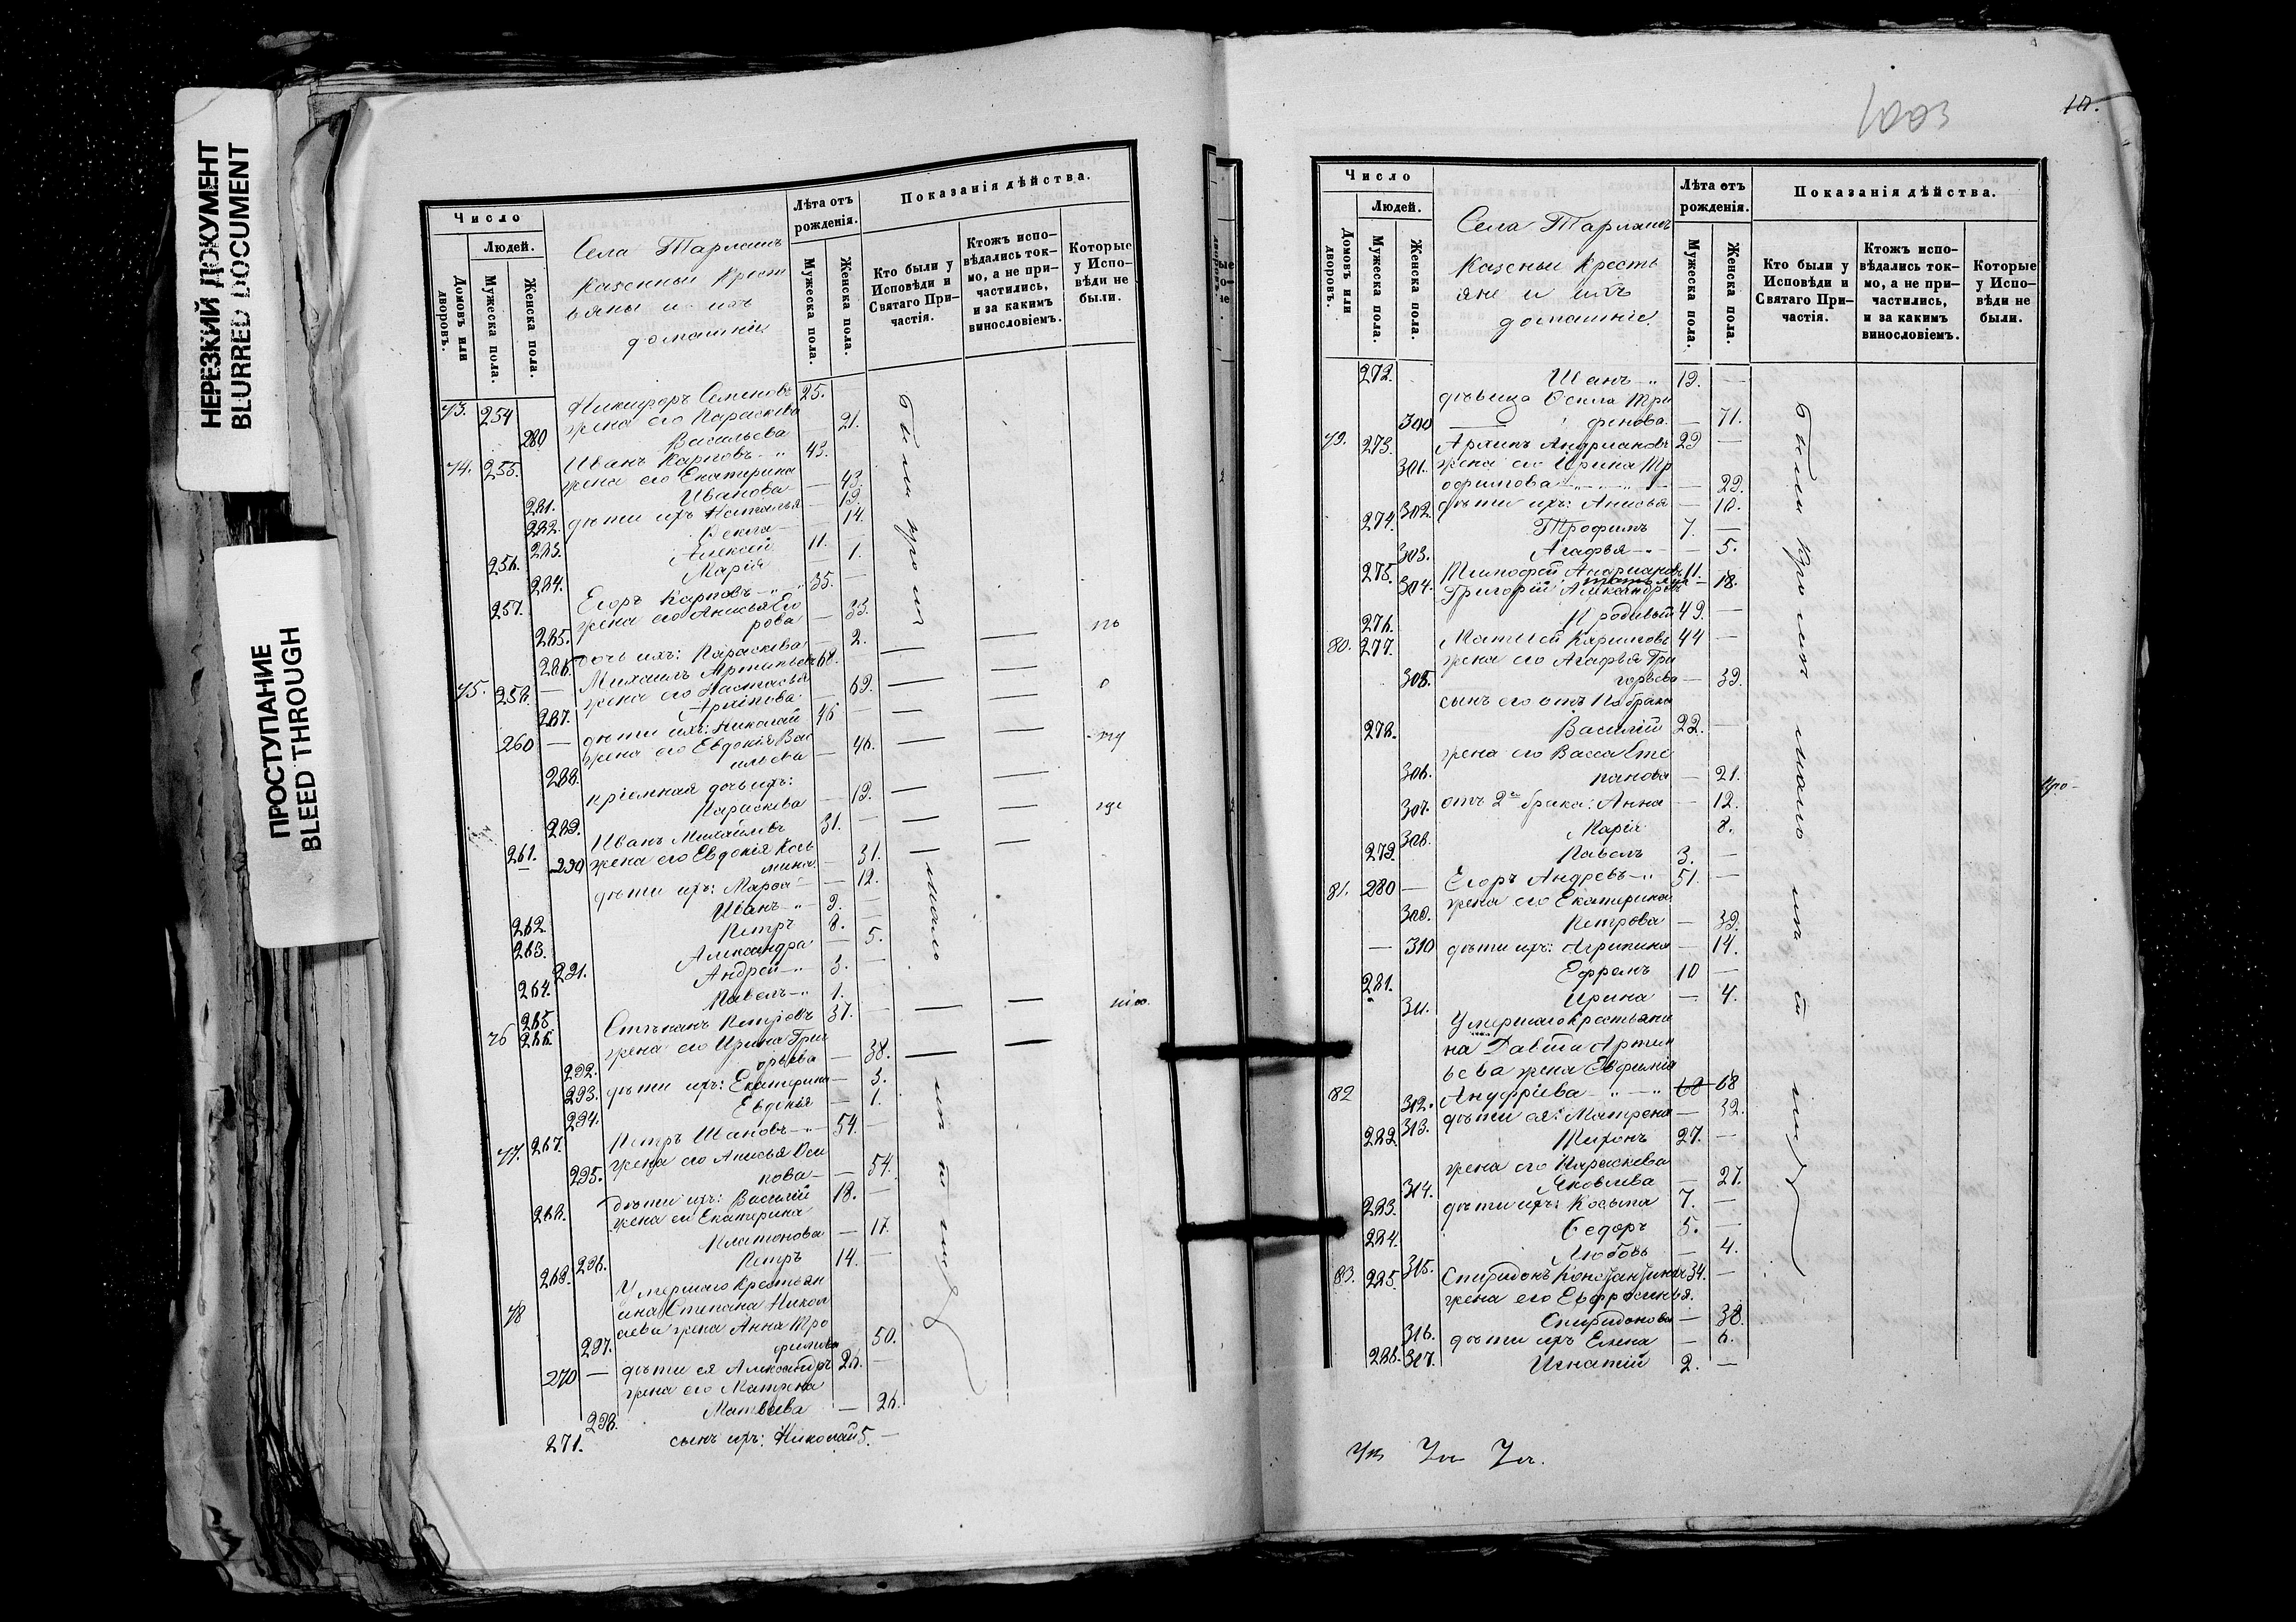 НЕРЕЗКИЙ ДОКУМЕНТ
BLURRED DOCUMENT
ПРОСТУПАНИЕ
BLEED THROUGH
Число
Людей.
Домовъ или дворовъ.
Мужеска пола.
Женска пола.
Села Тарлаш
Казенныи Крест
ьяны и ихъ
домашніи
Лѣта отъ рожденія.
Мужеска пола.
Женска пола.
Показанія дѣйства.
Кто были у Исповѣди и Святаго Причастія.
Ктожъ исповѣдались токмо, а не причастились, и за какимъ винословіемъ.
Которые у Исповѣди не были.
73. 254 Никифоръ Семеновъ 25.
жена его Параскева
280 Васильева — 21.
74. 255. Иванъ Карповъ 43.
жена его Екатерина
281. Иванова — 43.
282. дѣти ихъ Наталья — 19.
283. Фекла — 14.
256. Алексей 11.
284. Марія — 1.
257. Егоръ Карповъ 35. —
жена его Анисья Его
285. рова — 33.
286. дочь ихъ: Параскева — 2.
75. 258. Михаилъ 68.
жена его Настасья
287. — 69.
260 — дѣти ихъ: Николай 46 —
жена его Евдокія Вас
288. ильева — 46.
пріемная дочь ихъ:
289. Параскева — 19.
261. Иванъ Михайловъ 31. —
290 жена его Евдокія Кось
мина — 31.
дѣти ихъ: Марѳа — 12.
262. Иванъ 9. —
263. Петръ 8. —
291. Александра — 5.
264. Андрей 3. —
265. Павелъ 1.
76 266. Степанъ Петровъ 37. —
жена его Ирина Григ
292. орьева — 38.
293. дѣти ихъ: Екатерина — 3.
294. Евдокія — 1.
77. 267. Петръ Ивановъ 54. —
жена его Анисья Оси
295. пова — 54.
268. дѣти ихъ: Василій 18. —
жена его Екатерина
296. Платонова — 17
269. Петръ 14. —
78 Умершаго Крестьян
ина Степана Никол
аева жена Анна Тро
297. фимова 50.
270 — дѣти ея Александръ 26. —
жена его Матрена
298. Матвѣева — 26.
271. сынъ ихъ: Николай 5. —
1003
10.
Число
Людей.
Домовъ или дворовъ.
Мужеска пола.
Женска пола.
Села Тарлашъ
Казеныи Кресть
яне и ихъ
домашніе.
Лѣта отъ рожденія.
Мужеска пола.
Женска пола.
Показанія дѣйства.
Кто были у Исповѣди и Святаго Причастія.
Ктожъ исповѣдались токмо, а не причастились, и за какимъ винословіемъ.
Которые у Исповѣди не были.
272. Иванъ 19. —
дѣвица Ѳекла Три
300 фонова — 71.
79. 273. Архипъ Андриановъ 29 —
301. жена его Ирина Тр
офимова — 29.
302. дѣти ихъ: Анисья — 10.
274. Трофимъ 7. —
303. Агафья — 5.
275. Тимофей Андриановъ 11.
304. Григорій Александровъ — 18.
276. 49. —
80. 277. Матвей 44 —
жена его Агафья Гри
305. горьева — 39.
сынъ его отъ 1го брака
278. Василій 22. —
жена его Васса Сте
306. панова — 21.
307. отъ 2го брака: Анна — 12.
308. Марія 8.
279. Павелъ 3. —
81. 280 — Егоръ Андревъ 51. —
жена его Екатерина
309. Петрова — 39.
— 310 дѣти ихъ: Агрипина — 14.
281. Ефремъ 10 —
311. Ирина — 4.
Умершаго Крестьяни
на Давыда Артем
ьева жена Евфимія
82 312. 68 68
313. дѣти ея: Матрена — 32.
282. Тихонъ 27. —
жена его Параскева
314. Яковлева — 27.
283. дѣти ихъ: Косьма 7. —
284. Ѳедоръ 5. —
315. Любовь — 4.
83. 285. Спиридонъ Константиновъ 34. —
жена его Евфросинья.
316. Спиридонова — 38.
317. дѣти ихъ Елена — 6.
286. Игнатій 2. —